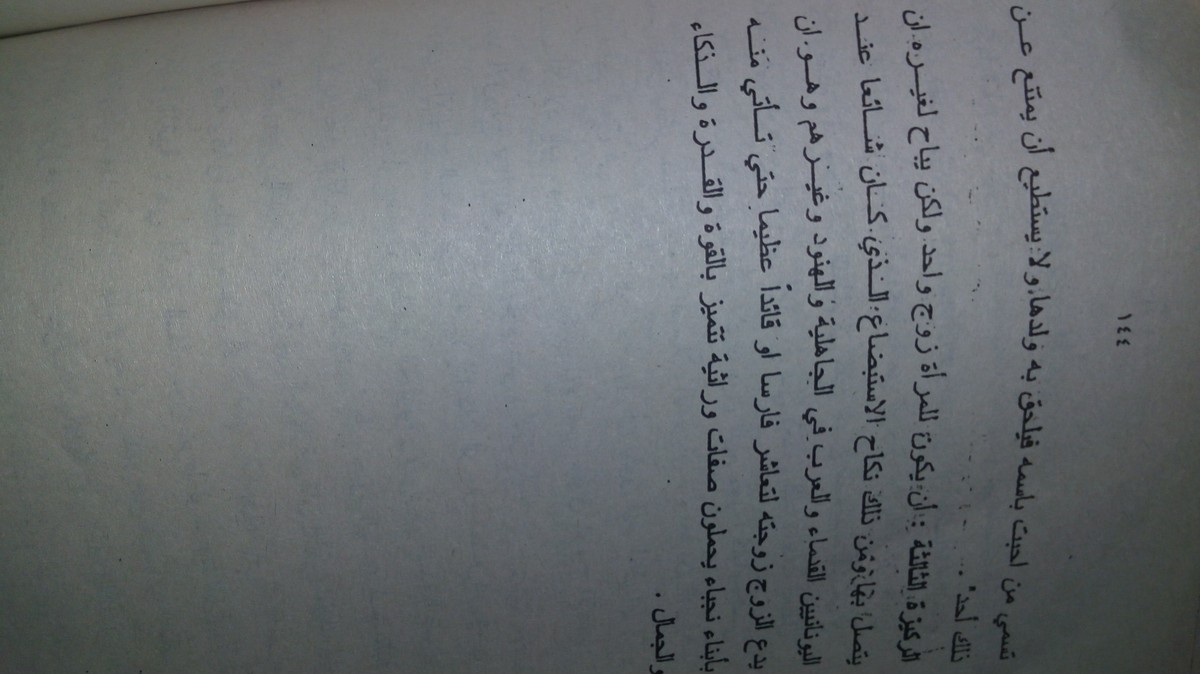 ١٤٤
تسمي من احبت باسمه فيلحق به ولدها، ولا يستطيع أن يمتنع عن
ذلك أحد" ...
الركيزة الثالثة : أن يكون للمرأة زوج واحد ولكن يباح لغيره ان
يتصل بها ومن ذلك نكاح الاستبضاع الذي كان شائعا عند
اليونانيين القدماء والعرب في الجاهلية والهنود وغيرهم وهو ان
يدع الزوج زوجته لتعاشر فارسا او قائداً عظيما حتي تأتي منه
بأبناء نجباء يحملون صفات وراثية تتميز بالقوة والقدرة والذكاء
والجمال .